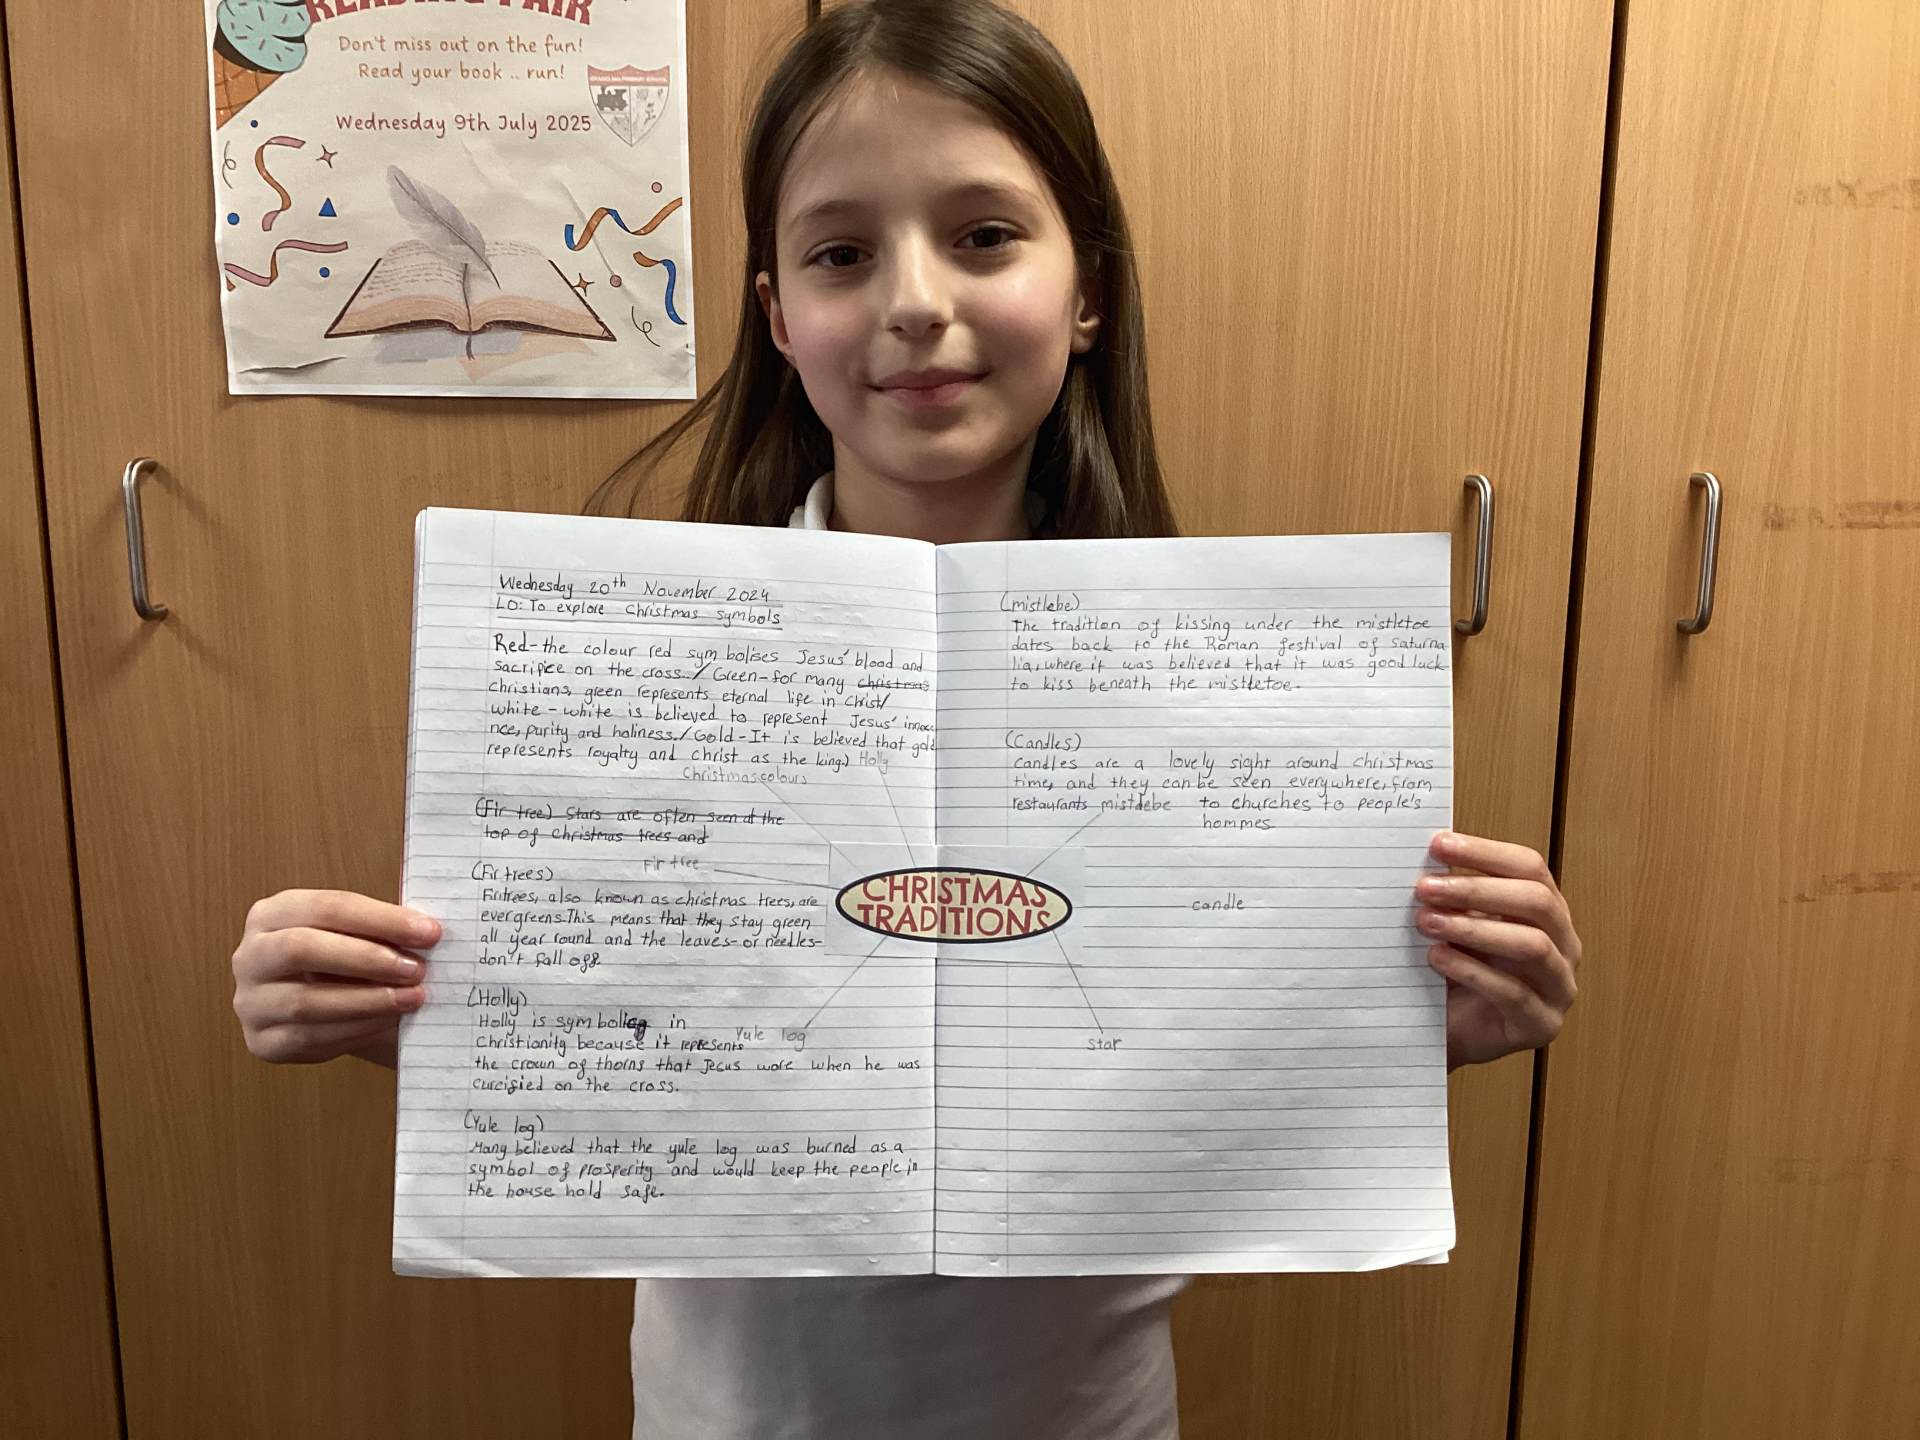 READING FAIR
Don't miss out on the fun!
Read your book .. run!
Wednesday 9th July 2025
Wednesday 20th November 2024
LO: To explore Christmas symbols
Red-the colour red symbolises Jesus' blood and
sacrifice on the cross./Green-for many christmas
christians, green represents eternal life in christ/
white-white is believed to represent Jesus' innoce
nce, purity and holiness./Gold-It is believed that gold
represents royalty and christ as the king.) Holly
Christmas colours
(Fir tree) Stars are often seen at the
top of christmas trees and
Fir tree
(Fir trees)
Firtrees, also known as christmas trees, are
evergreens.This means that they stay green
all year round and the leaves-or needles-
don't fall off
(Holly)
Holly is symbolic in
Christianity because it represents
Yule log
the crown of thorns that Jesus wore when he was
curcified on the cross.
(Yule log)
Many believed that the yule log was burned as a
symbol of prosperity and would keep the people in
the house hold safe.
CHRISTMAS
TRADITIONS
(mistlebe)
The tradition of kissing under the mistletoe
dates back to the Roman festival of saturna
lia, where it was believed that it was good luck
to kiss beneath the mistletoe.
(Candles)
candles are a lovely sight around christmas
time, and they can be seen everywhere, from
restaurants mistlebe to churches to people's
hommes
candle
star